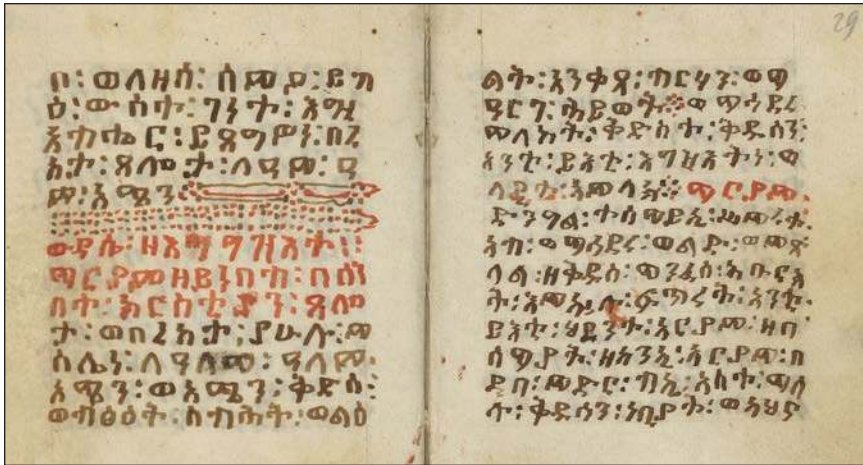 ቡ፡ ወለዘሰ፡ ሰመዖ፡ ይግ
ዕ፡ ውስተ፡ ገነት፡ እግዚ
አብሔር፡ ይጸግሥነ፡ በረ
ከተ፡ ጸሎታ፡ ለዓመ፡ ዓ
መ፡ አሜን
ውዳሴ፡ ዘእግዝእት።
ማርያመ ዘይነበብ፡ በሰን
በት፡ ክርስቲያን፡ ጸሎ
ታ፡ ወበረከታ፡ ያሀሉ፡ መ
ስሌነ፡ ለዓለመ፡ ዓለመ
አሜን፡ ወአሜን፡ ቅድስ፡
ወብፅዕት፡ ስብሕት፡ ወልዕ
29
ልት፡ አንቀጸ፡ ብርሃን፡ ወማ
ዓርገ፡ ሕይወት። ወማኅደረ
መለኮት፡ ቅድስተ፡ ቅዱሰን፡
አንቲ፡ ይእቲ፡ እግዝእትነ፡ ወ
ላዲተ፡ አመላክ። ማርያመ
ድንግል፡ ተሰመይኪ፡ ሥመረተ
አብ፡ ወማኅደረ፡ ወልድ፡ ወመጽ
ላል፡ ዘቅዱስ፡ መንፈስ፡ ኦቡርእ
ት፡ እመኵሉ፡ ፍጥረት፡ አንቲ
ይእቲ፡ ህየንተ፡ አርያመ፡ ዘበ
ሰማያት፡ ዘኮንኪ፡ አርያመ፡ በ
ዲበ፡ መድር፡ ብኪ፡ አስተ፡ ማለ
ሉ፡ ቅዱሰን፡ ነቢያት፡ ወካህና